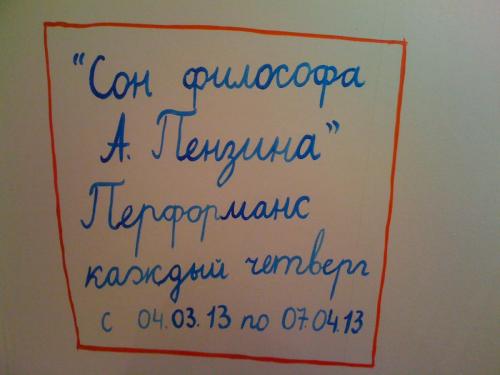 "Сон философа
А. Пензина"
Перформанс
каждый четверг
с 04.03.13 по 07.04.13